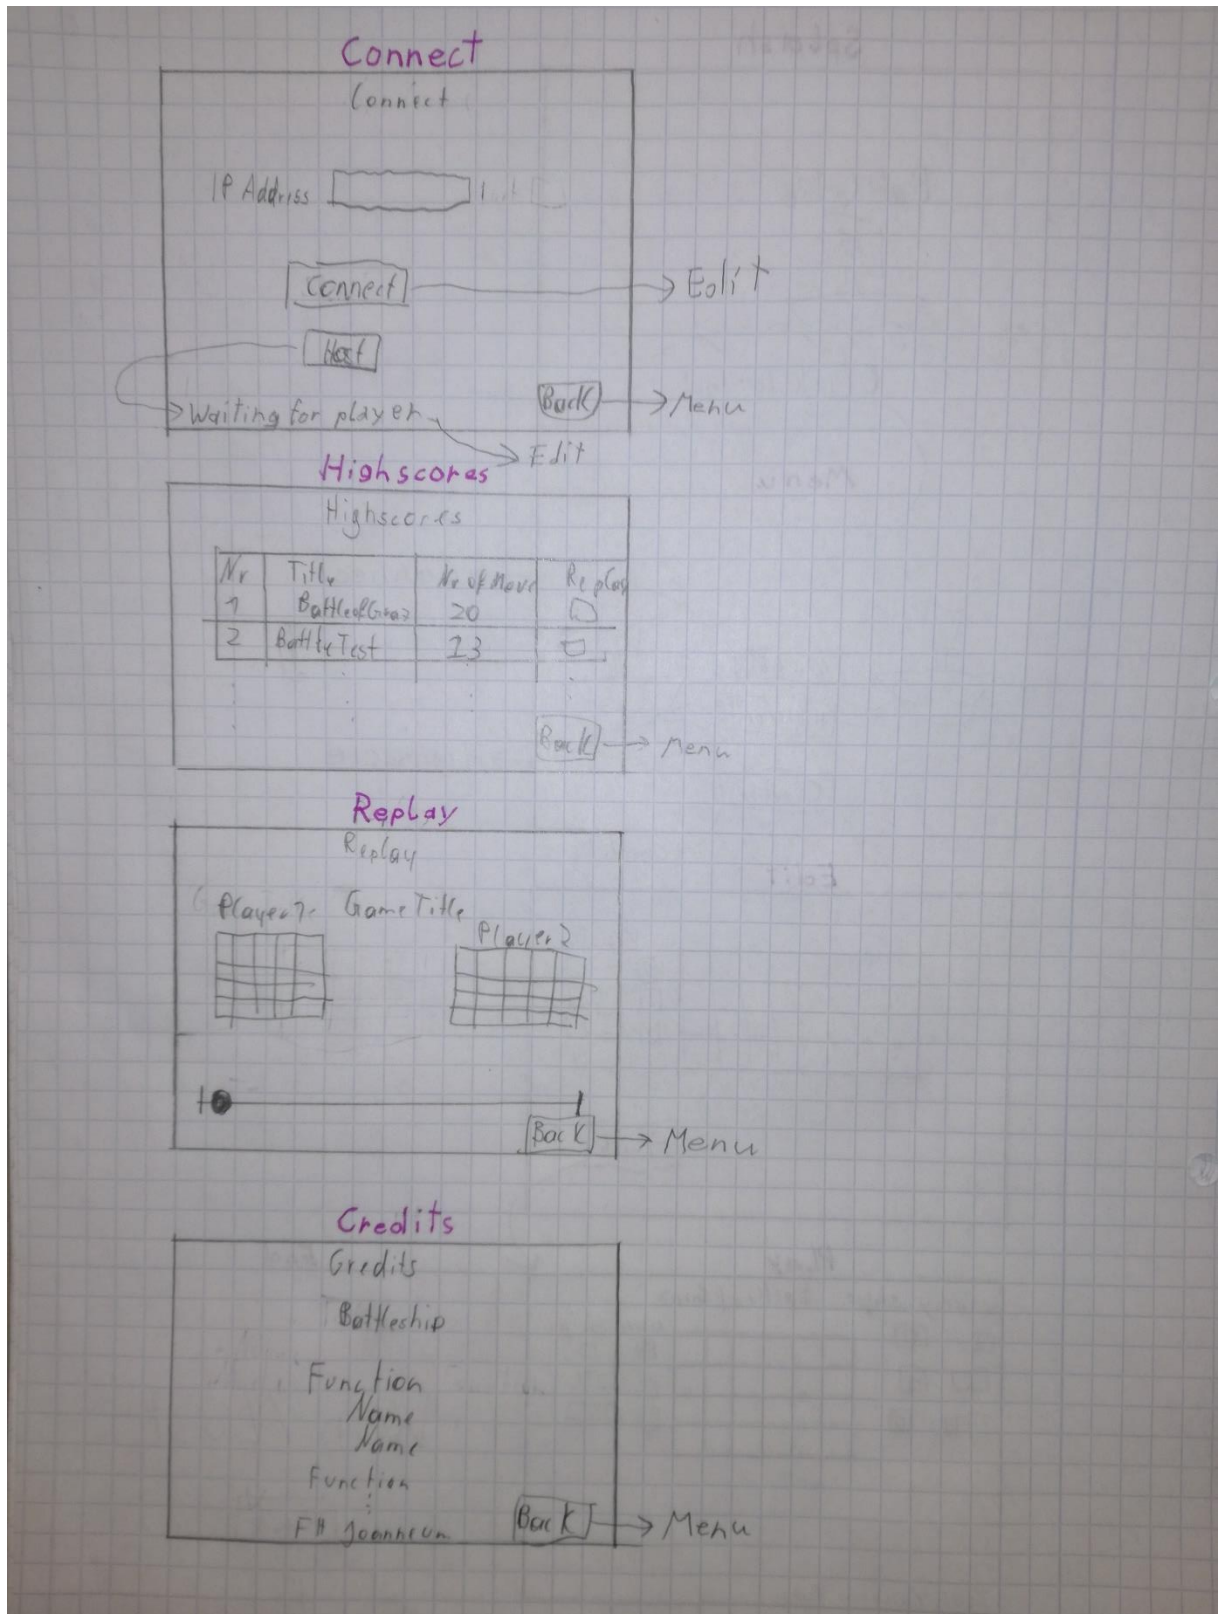 Connect
Connect
IP Address
Connect → Edit
Host
Back → Menu
Waiting for player → Edit
Highscores
Highscores
Nr Title Nr of Move Replay
1 BattleofGraz 20
2 BattleTest 23
Back → Menu
Replay
Replay
Player1 GameTitle
Player2
Back → Menu
Credits
Credits
Battleship
Function
Name
Name
Function
FH Joanneum Back → Menu